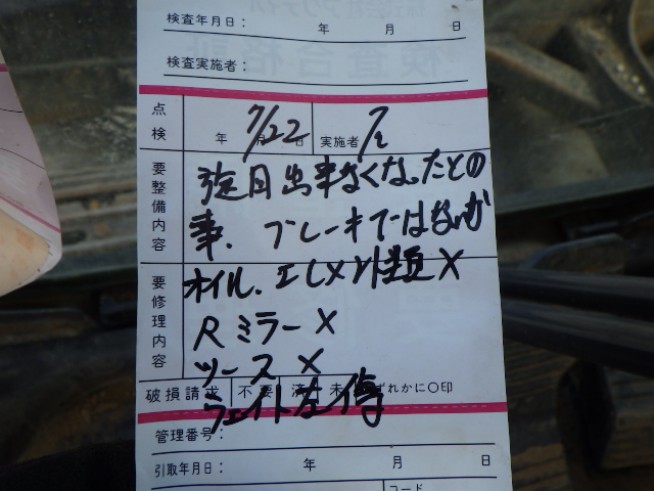 検査年月日： 年 月 日
検査実施者：
点検 年 7/22 日 実施者 7/2
要整備内容
旋回出来なくなったとの
事、ブレーキではないか
オイル、エレメント類 X
要修理内容
R ミラー X
ツース X
破損請求 不要 済 未 ずれかに○印
ウェイト左傷
管理番号：
引取年月日： 年 月 日
コード